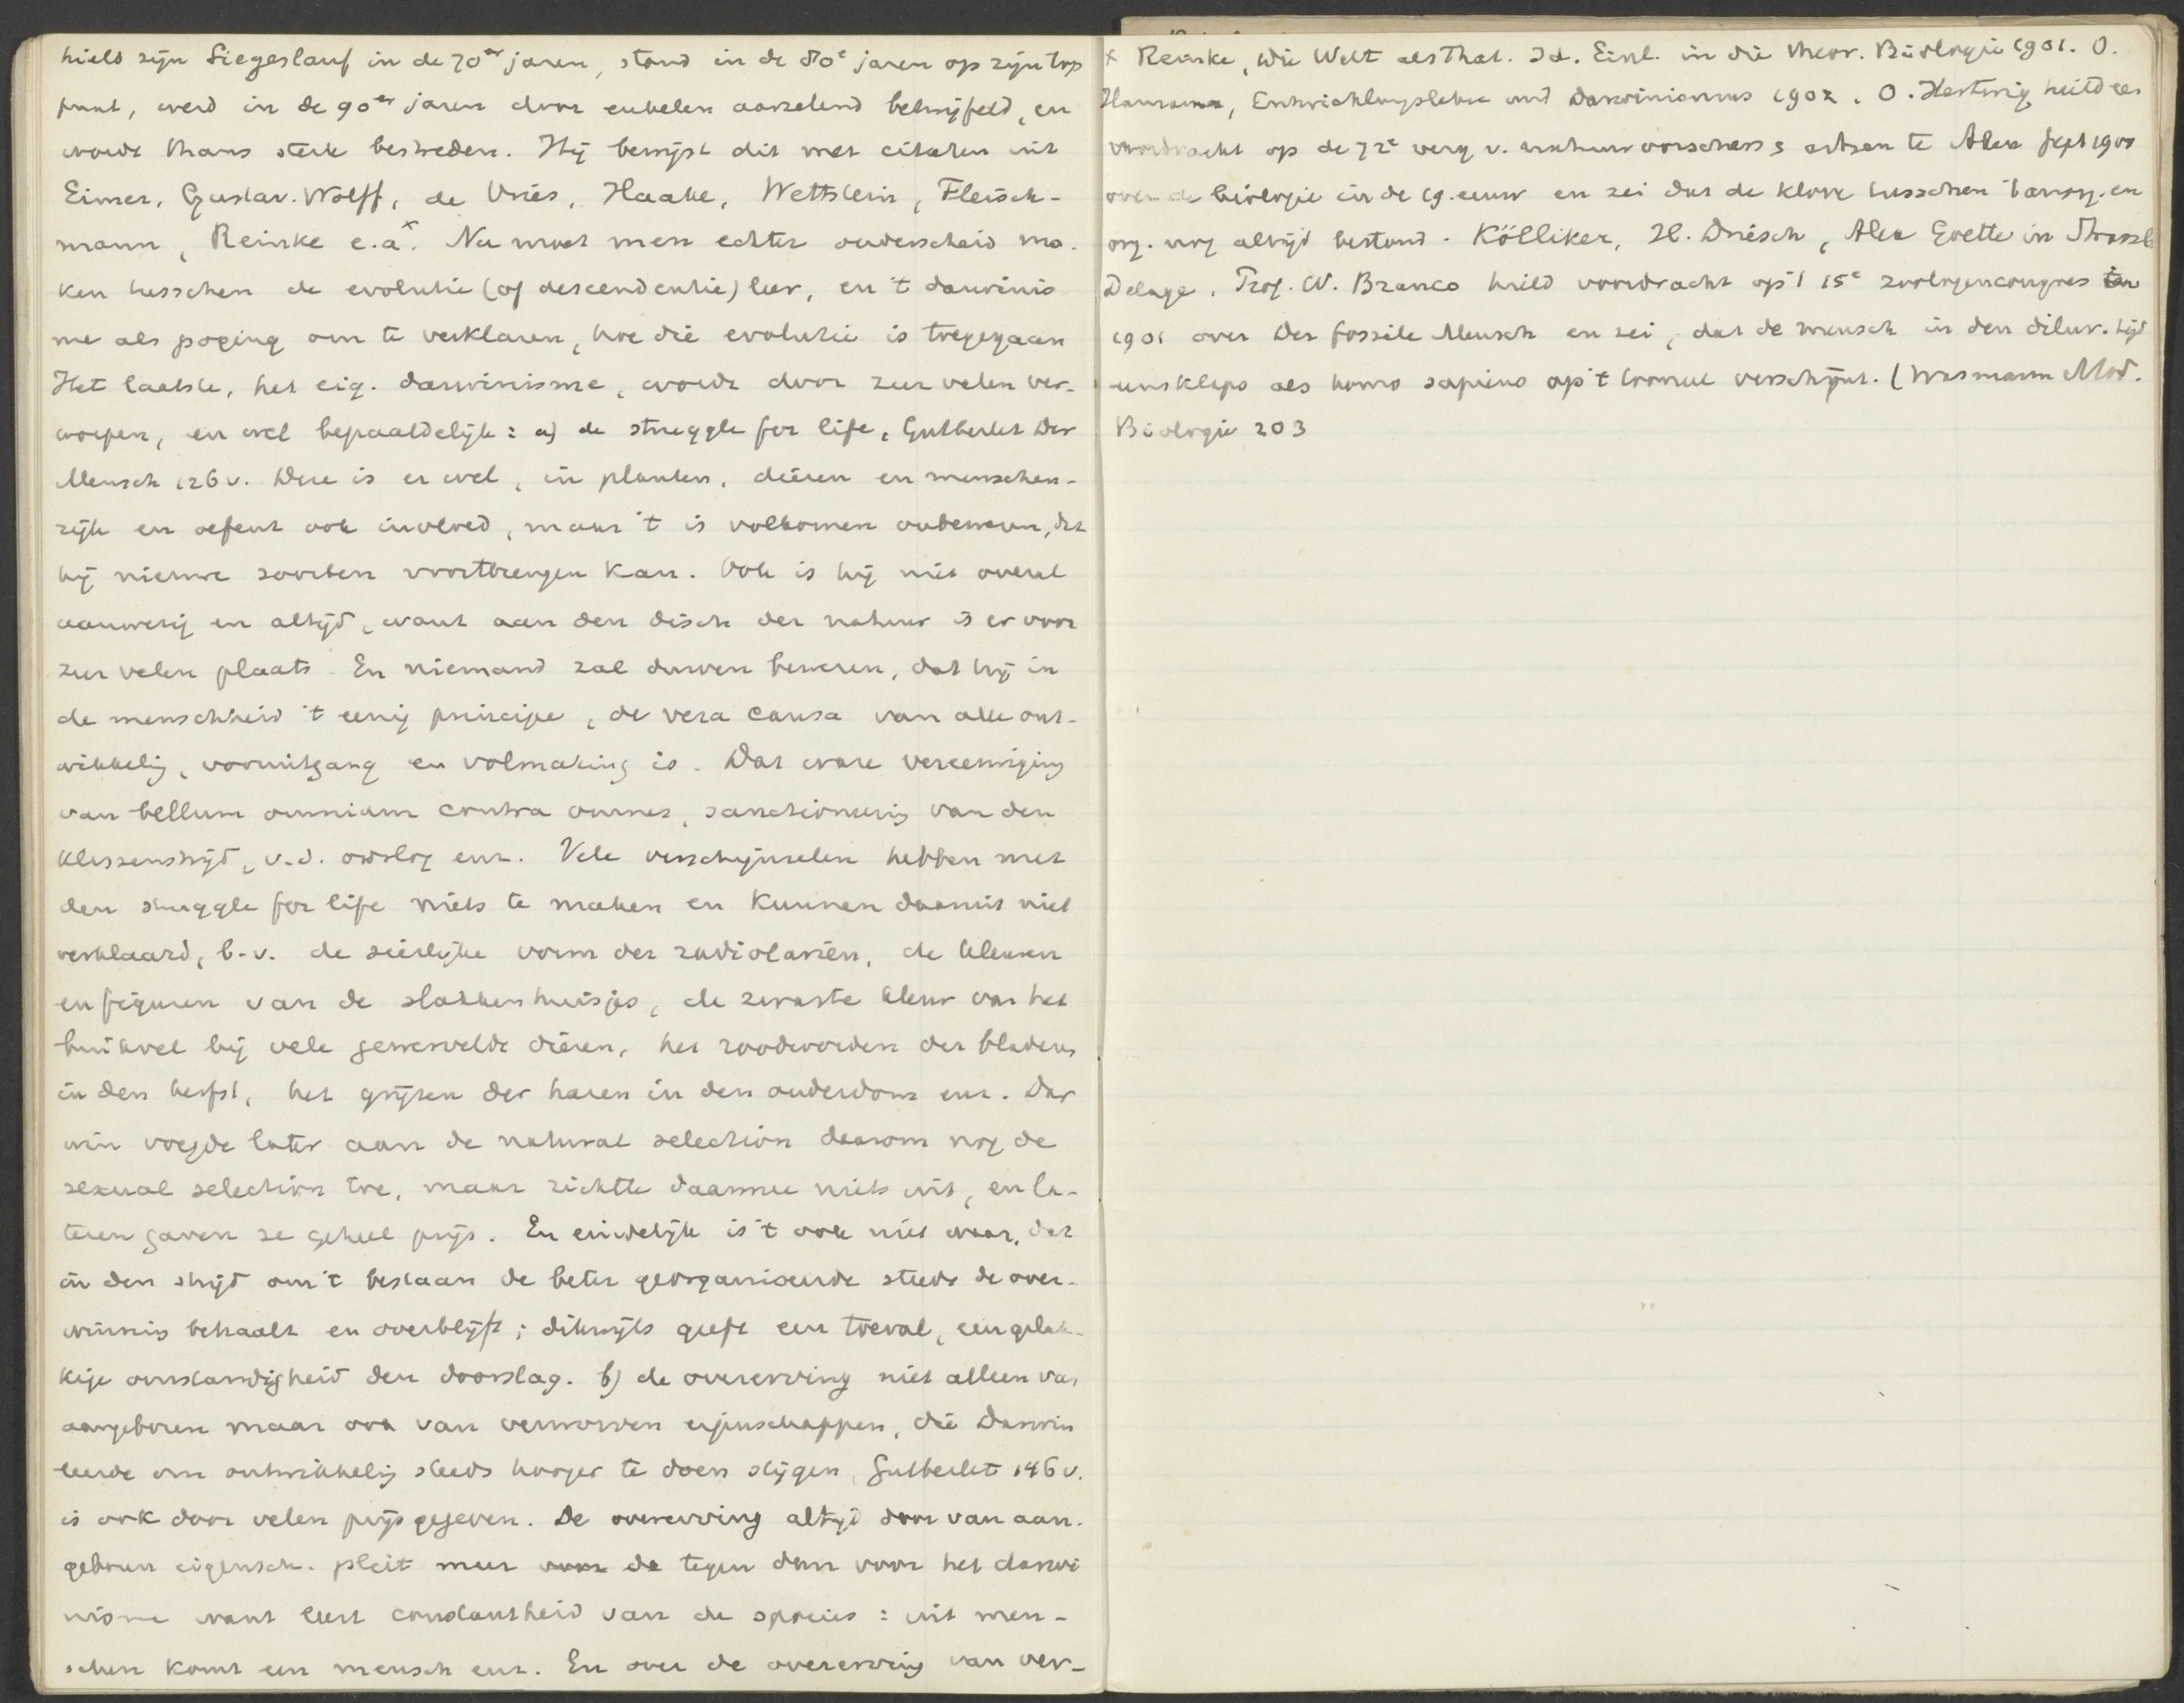 hield zijn Siegeslauf in de 70er jaren, stond in de 80e jaren op zijn top
punt, werd in de 90er jaren door enkelen aarzelend betwijfeld, en
wordt thans sterk bestreden. Hij bewijst dit met citaten uit
Eimer, Gustav. Wolff, de Vries, Haake, Wettstein, Fleisch-
mann, Reinke e.a.x Nu moet men echter onderscheid ma-
ken tusschen de evolutie (of descendentie) leer, en 't darwinis
me als poging om te verklaren, hoe die evolutie is toegegaan
Het laatste, het eig. darwinisme, wordt door zeer velen ver-
worpen, en wel bepaaldelijk: a) de struggle for life, Gutberlet Der
Mensch 126 v. Deze is er wel, in planten, dieren en menschen-
rijk en oefent ook invloed, maar 't is volkomen onbewezen, dat
hij nieuwe soorten voortbrengen kan. Ook is hij niet overal
aanwezig en altijd, want aan den disch der natuur is er voor
zeer velen plaats. En niemand zal durven beweren, dat hij in
de menschheid 't eenig principe, de vera causa van alle ont-
wikkelig, vooruitgang en volmaking is. Dat ware vereeuwiging
van bellum omnium contra omnes, sanctioneerig van den
klassenstrijd, v.d. oorlog enz. Vele verschijnselen hebben met
den struggle for life niets te maken en kunnen daaruit niet
verklaard, b.v. de sierlijke vorm der radiolariën, de kleuren
en figuren van de slakkenhuisjes, de zwarte kleur van het
buikvel bij vele gewervelde dieren, het roodworden der bladeren
in den herfst, het grijzen der haren in den ouderdom enz. Dar
win voegde later aan de natural selection daarom nog de
sexual selection toe, maar richtte daarmee niets uit, en la-
teren gaven ze geheel prijs. En eindelijk is 't ook niet waar, dat
in den strijd om 't bestaan de beter georganiseerde steeds de over-
winnig behaalt en overblijft; dikwijls geeft een toeval, een geluk-
kige omstandigheid den doorslag. b) de overerving niet alleen van
aangeboren maar ook van verworven eigenschappen, die Darwin
leerde om ontwikkelig steeds hooger te doen stijgen, Gutberlet 146 v.
is ook door velen prijsgegeven. De overerving altijd door van aan-
geboren eigensch. pleit meer voor de tegen dan voor het darwi
nisme want leert constantheid van de species: uit men-
schen komt een mensch enz. En over de overerving van ver-
x Reinke, Die Welt als That. Id. Einl. in die theor. Biologie 1901. O.
Hamann, Entwicklungslehre und Darwinismus 1902. O. Hertwig hield een
voordracht op de 72e verg v. natuurvorschers & artsen te Aken Sept 1900
over de biologie in de 19. eeuw en zei dat de klove tusschen 't anorg. en
org. nog altijd bestond. Kölliker, H. Driesch, Alex Goette in Strassb
Delage. Prof. W. Branco hield voordracht op 't 15e zoologencongres in
1901 over Der fossile Mensch en zei, dat de mensch in den diluv. tijd
eensklaps als homo sapiens op 't tooneel verschijnt. (Wasmann Mod.
Biologie 203